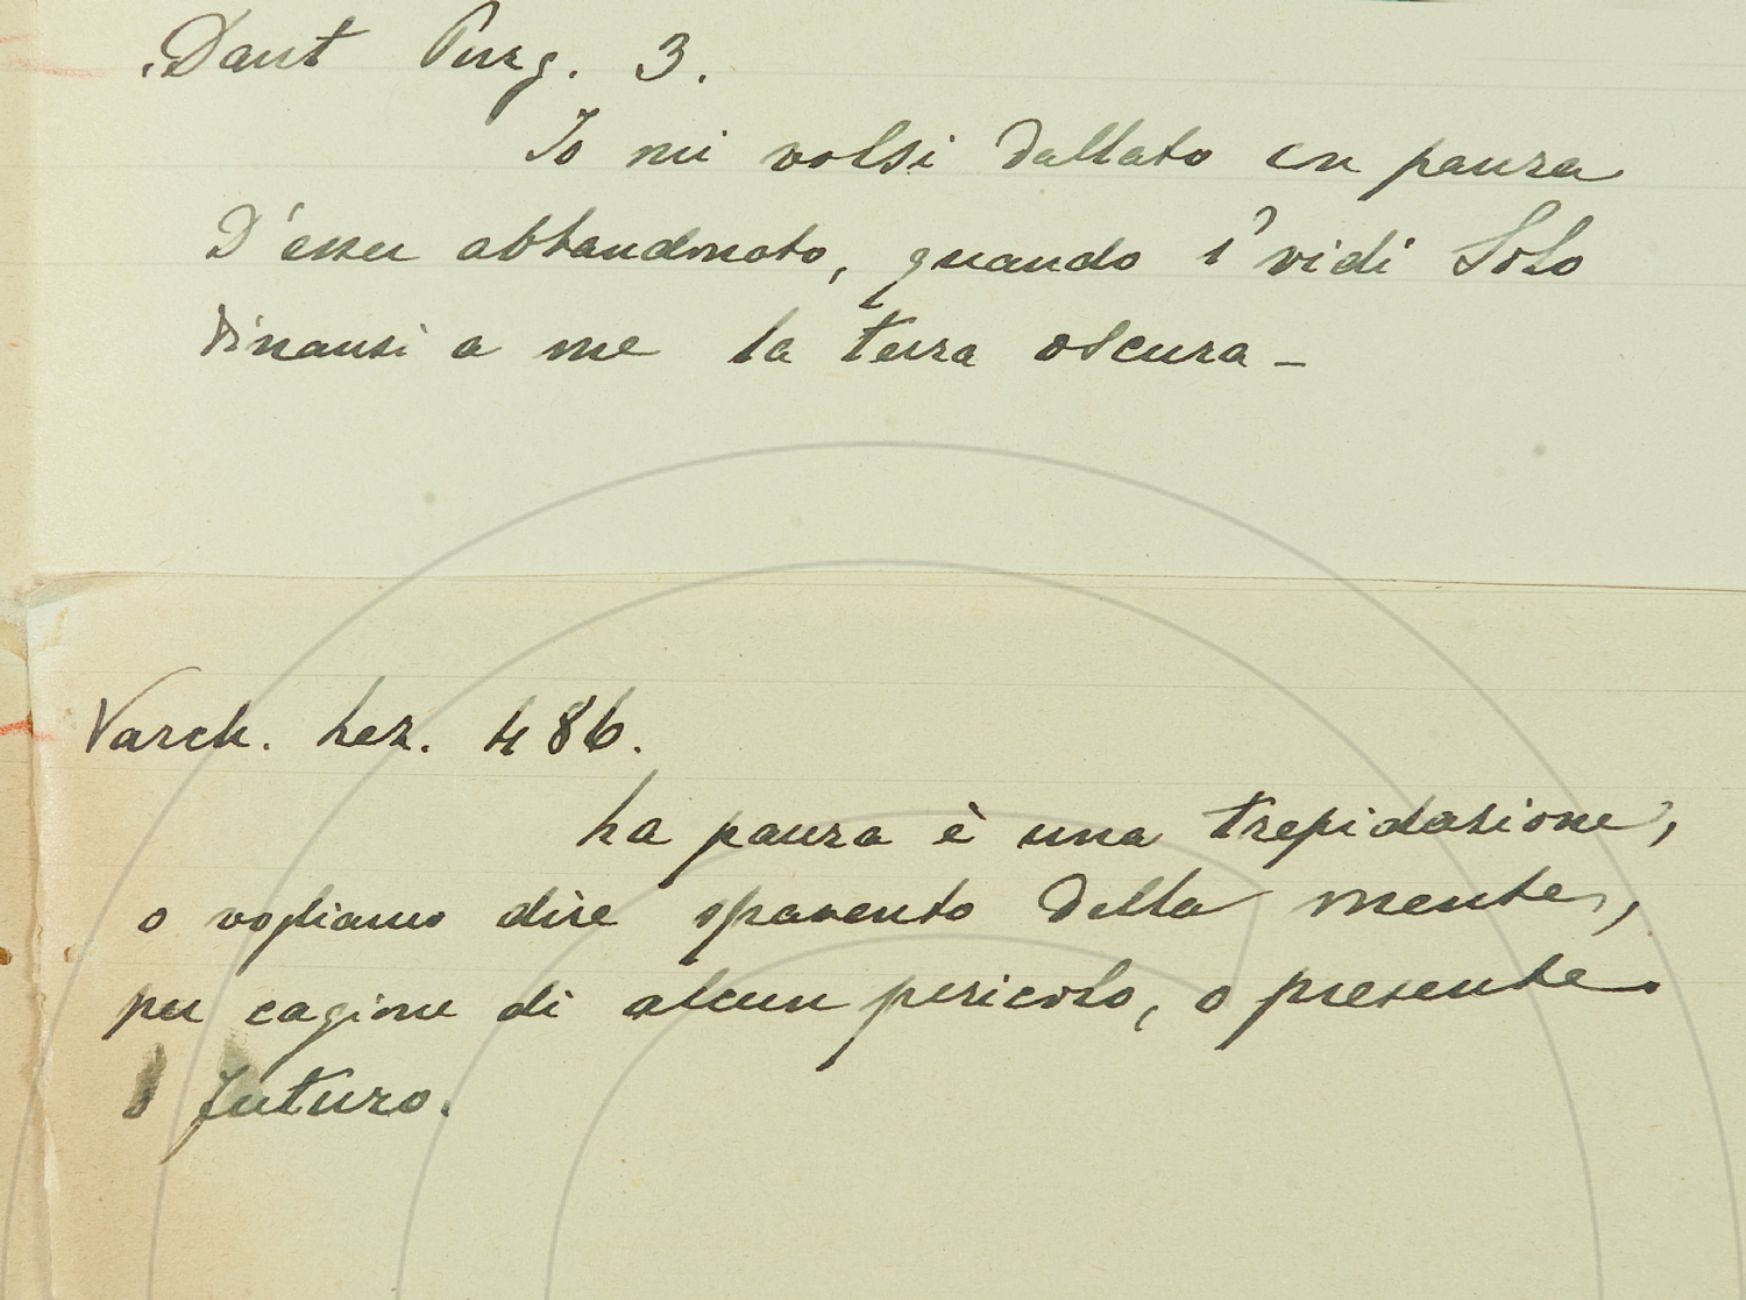 Dant Purg. 3.
Io mi volsi dallato con paura
D'esser abbandonato, quando i' vidi Solo
Dinanzi a me la terra oscura –
Varch. Lez. 486.
La paura è una trepidazione,
o vogliamo dire spavento della mente,
per cagione di alcun pericolo, o presente.
o futuro.